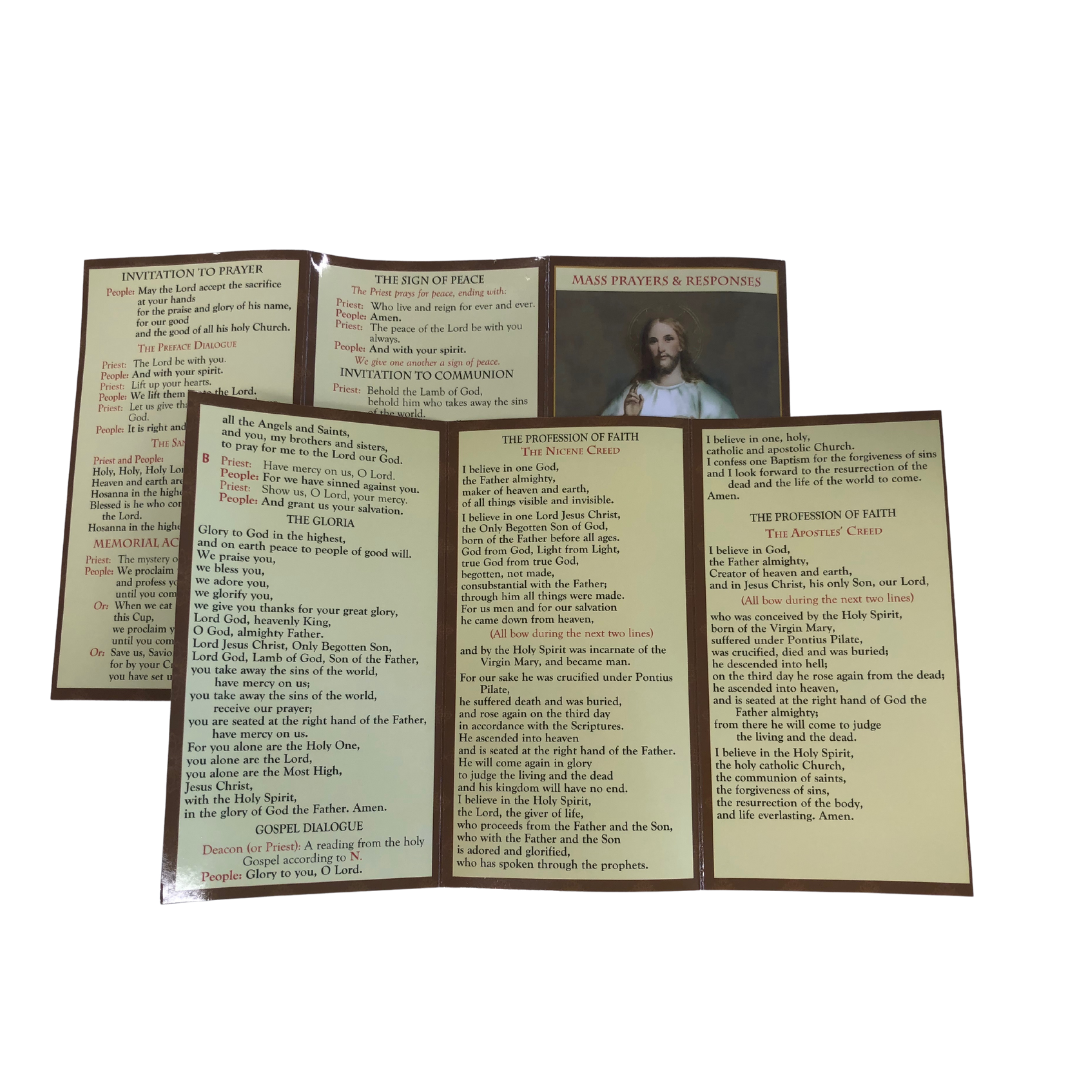 INVITATION TO PRAYER
People: May the Lord accept the sacrifice
at your hands
for the praise and glory of his name,
for our good
and the good of all his holy Church.
THE PREFACE DIALOGUE
Priest: The Lord be with you.
People: And with your spirit.
Priest: Lift up your hearts.
People: We lift them to the Lord.
Priest: Let us give
God.
People: It is right and
THE
Priest and People:
Holy, Holy, Holy
Heaven and earth are
Hosanna in the
Blessed is he who
the Lord.
Hosanna in the
MEMORIAL
Priest: The mystery
People: We proclaim
and profess
until you
Or: When we eat
this Cup,
we proclaim
until you
Or: Save us,
for by your
you have set
THE SIGN OF PEACE
The Priest prays for peace, ending with:
Priest: Who live and reign for ever and ever.
People: Amen.
Priest: The peace of the Lord be with you
always.
People: And with your spirit.
We give one another a sign of peace.
INVITATION TO COMMUNION
Priest: Behold the Lamb of God,
behold him who takes away the sins
of the world.
MASS PRAYERS & RESPONSES
all the Angels and Saints,
and you, my brothers and sisters,
to pray for me to the Lord our God.
B Priest: Have mercy on us, O Lord.
People: For we have sinned against you.
Priest: Show us, O Lord, your mercy.
People: And grant us your salvation.
THE GLORIA
Glory to God in the highest,
and on earth peace to people of good will.
We praise you,
we bless you,
we adore you,
we glorify you,
we give you thanks for your great glory,
Lord God, heavenly King,
O God, almighty Father.
Lord Jesus Christ, Only Begotten Son,
Lord God, Lamb of God, Son of the Father,
you take away the sins of the world,
have mercy on us;
you take away the sins of the world,
receive our prayer;
you are seated at the right hand of the Father,
have mercy on us.
For you alone are the Holy One,
you alone are the Lord,
you alone are the Most High,
Jesus Christ,
with the Holy Spirit,
in the glory of God the Father. Amen.
GOSPEL DIALOGUE
Deacon (or Priest): A reading from the holy
Gospel according to N.
People: Glory to you, O Lord.
THE PROFESSION OF FAITH
THE NICENE CREED
I believe in one God,
the Father almighty,
maker of heaven and earth,
of all things visible and invisible.
I believe in one Lord Jesus Christ,
the Only Begotten Son of God,
born of the Father before all ages.
God from God, Light from Light,
true God from true God,
begotten, not made,
consubstantial with the Father;
through him all things were made.
For us men and for our salvation
he came down from heaven,
(All bow during the next two lines)
and by the Holy Spirit was incarnate of the
Virgin Mary, and became man.
For our sake he was crucified under Pontius
Pilate,
he suffered death and was buried,
and rose again on the third day
in accordance with the Scriptures.
He ascended into heaven
and is seated at the right hand of the Father.
He will come again in glory
to judge the living and the dead
and his kingdom will have no end.
I believe in the Holy Spirit,
the Lord, the giver of life,
who proceeds from the Father and the Son,
who with the Father and the Son
is adored and glorified,
who has spoken through the prophets.
I believe in one, holy,
catholic and apostolic Church.
I confess one Baptism for the forgiveness of sins
and I look forward to the resurrection of the
dead and the life of the world to come.
Amen.
THE PROFESSION OF FAITH
THE APOSTLES' CREED
I believe in God,
the Father almighty,
Creator of heaven and earth,
and in Jesus Christ, his only Son, our Lord,
(All bow during the next two lines)
who was conceived by the Holy Spirit,
born of the Virgin Mary,
suffered under Pontius Pilate,
was crucified, died and was buried;
he descended into hell;
on the third day he rose again from the dead;
he ascended into heaven,
and is seated at the right hand of God the
Father almighty;
from there he will come to judge
the living and the dead.
I believe in the Holy Spirit,
the holy catholic Church,
the communion of saints,
the forgiveness of sins,
the resurrection of the body,
and life everlasting. Amen.